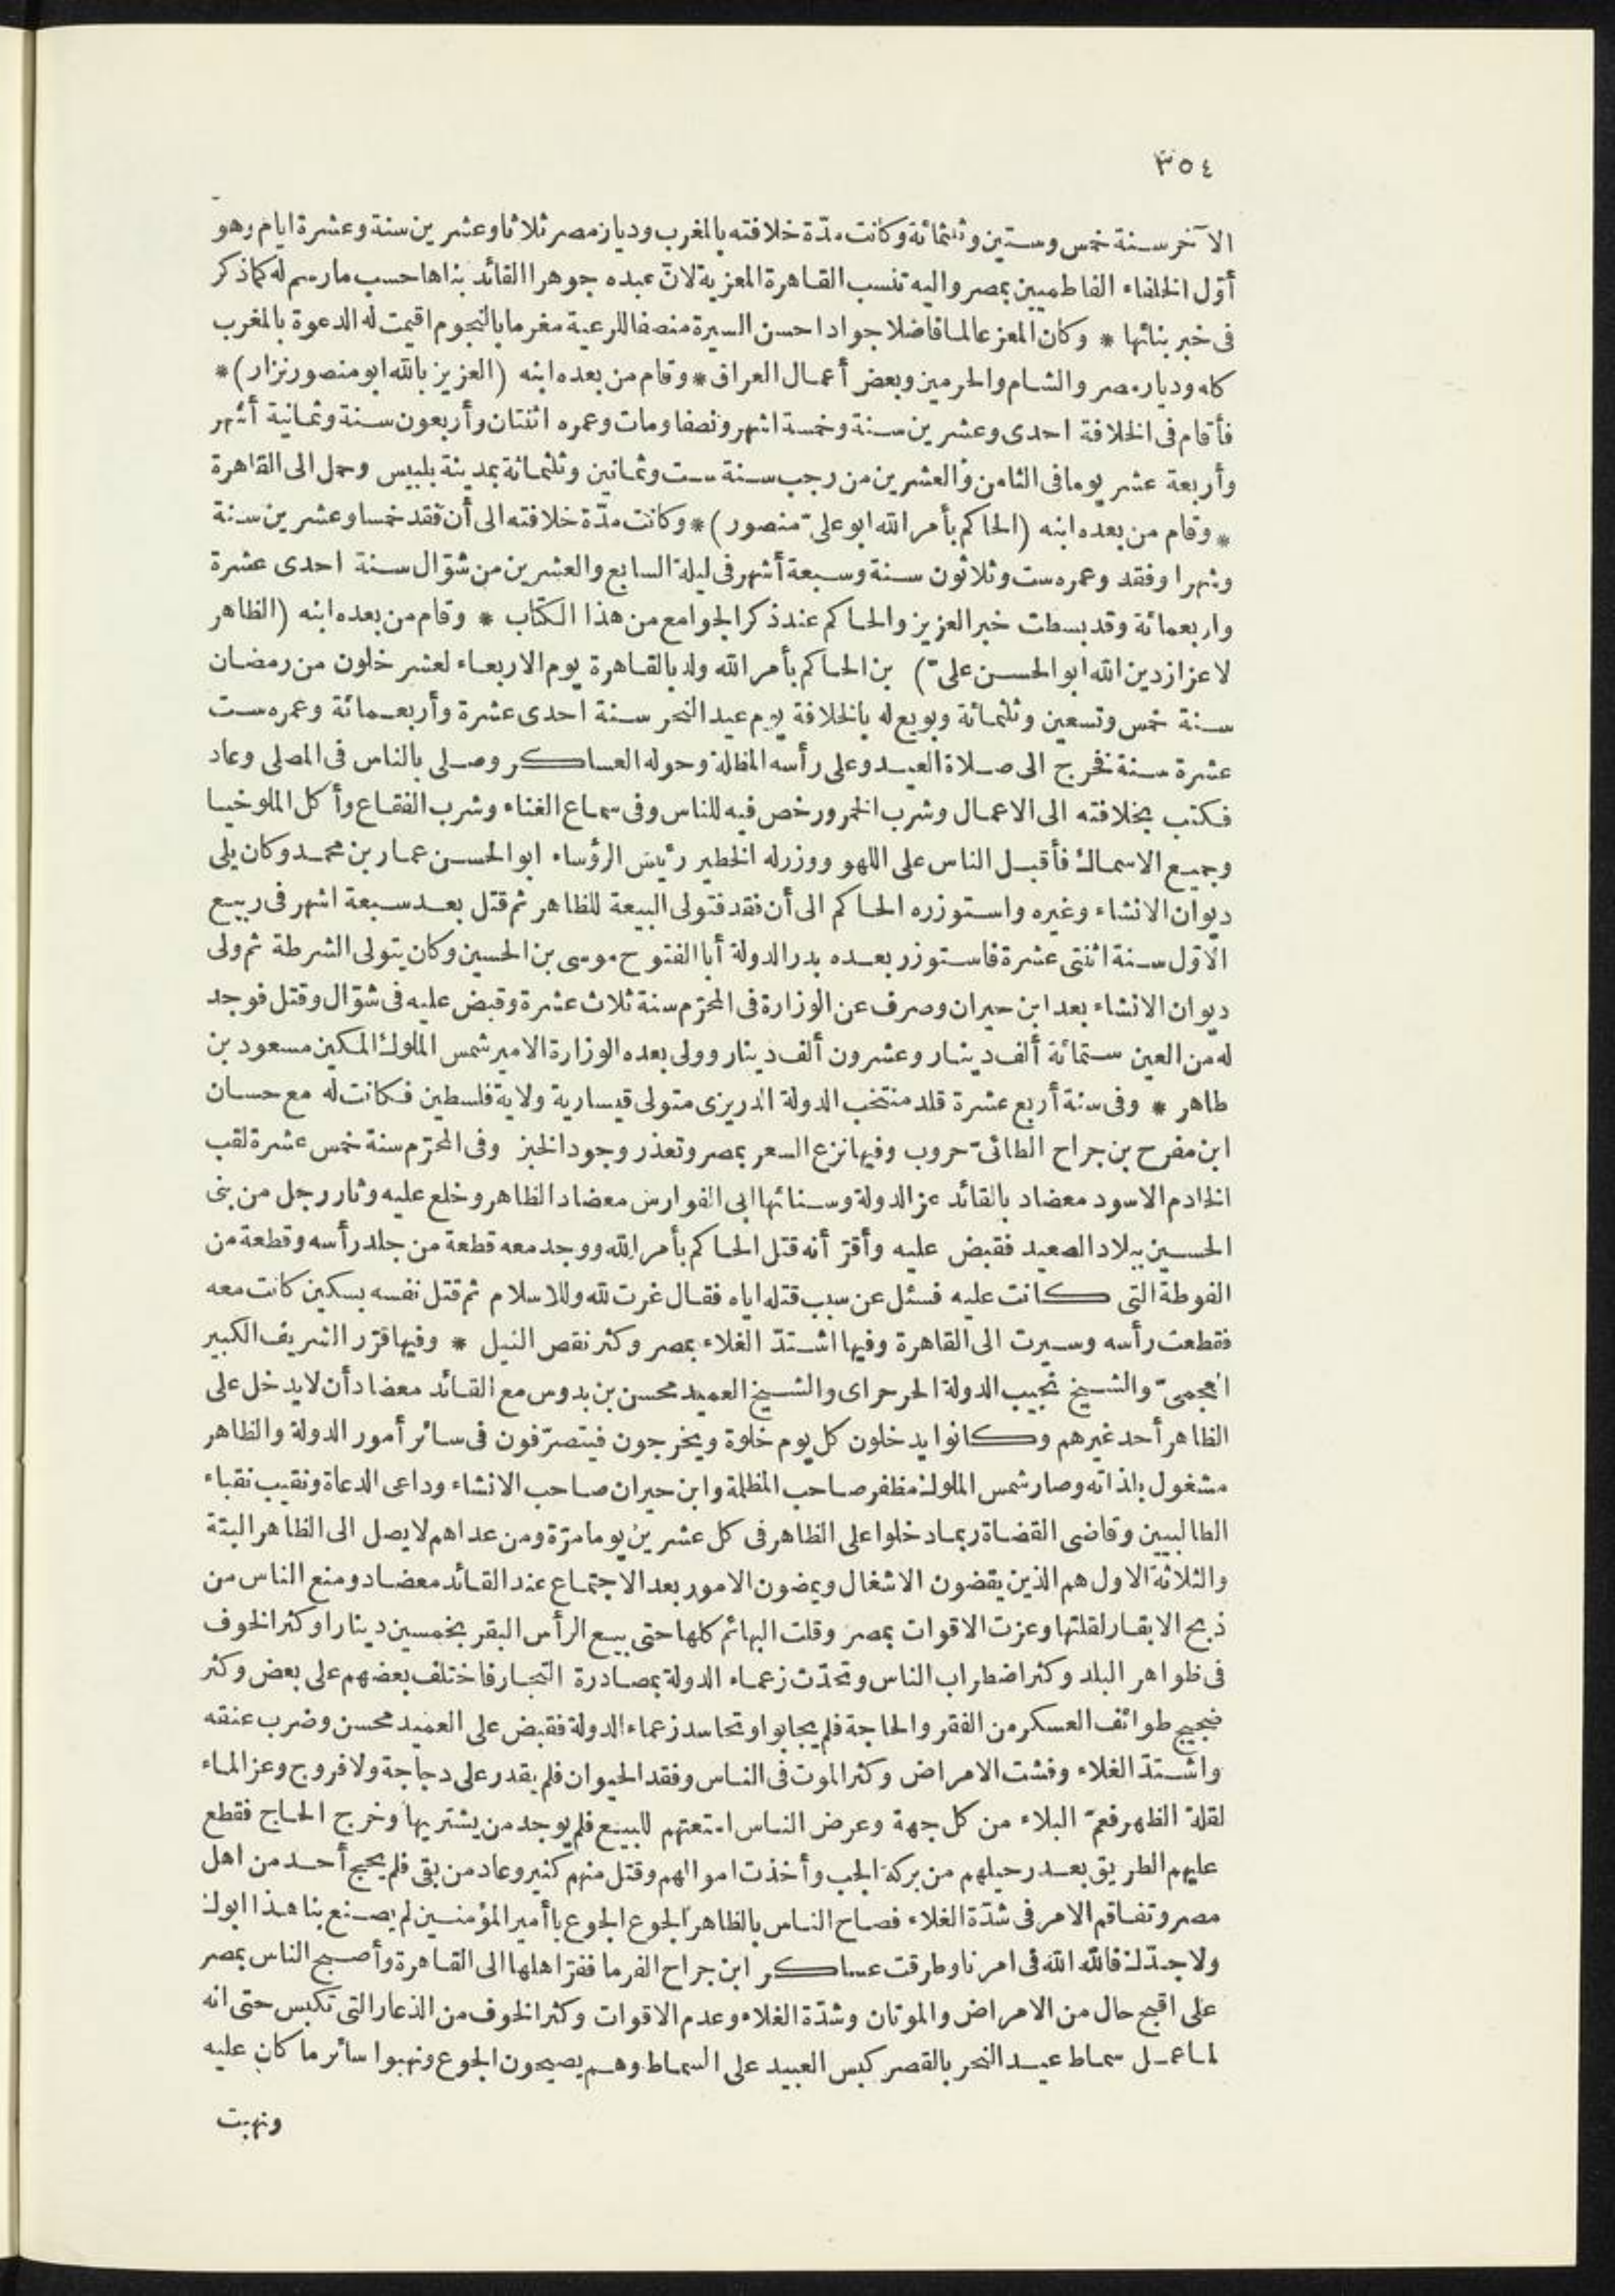 ٣٥٤
الآخر سنة خمس وستين وثلثمائة وكانت مدّة خلافته بالمغرب وديار مصر ثلاثا وعشرين سنة وعشرة ايام وهو
أوّل الخلفاء الفاطميين بمصر واليه تنسب القاهرة المعزية لانّ عبده جوهرا القائد بناها حسب مارسم له كما ذكر
فى خبر بنائها * وكان المعز عالما فاضلا جوادا حسن السيرة منصفا للرعية مغرما بالنجوم اقيمت له الدعوة بالمغرب
كله وديار مصر والشام والحرمين وبعض أعمال العراق * وقام من بعده ابنه (العزيز بالله ابو منصور نزار) *
فأقام فى الخلافة احدى وعشرين سنة وخمسة اشهر ونصفا ومات وعمره اثنتان وأربعون سنة وثمانية أشهر
وأربعة عشر يوما فى الثامن والعشرين من رجب سنة ست وثمانين وثلثمائة بمدينة بلبيس وحمل الى القاهرة
* وقام من بعده ابنه (الحاكم بأمر الله ابو علىّ منصور) * وكانت مدّة خلافته الى أن فقد خمسا وعشرين سنة
وشهرا وفقد وعمره ست وثلاثون سنة وسبعة أشهر فى ليلة السابع والعشرين من شوّال سنة احدى عشرة
واربعمائة وقد بسطت خبر العزيز والحاكم عند ذكر الجوامع من هذا الكتاب * وقام من بعده ابنه (الظاهر
لاعزاز دين الله ابو الحسن علىّ) بن الحاكم بأمر الله ولد بالقاهرة يوم الاربعاء لعشر خلون من رمضان
سنة خمس وتسعين وثلثمائة وبويع له بالخلافة يوم عيد النحر سنة احدى عشرة وأربعمائة وعمره ست
عشرة سنة فخرج الى صلاة العيد وعلى رأسه المظلة وحوله العساكر وصلى بالناس فى المصلى وعاد
فكتب بخلافته الى الاعمال وشرب الخمر ورخص فيه للناس وفى سماع الغناء وشرب الفقاع وأكل الملوخيا
وجميع الاسماك فأقبل الناس على اللهو ووزر له الخطير رئيس الرؤساء ابو الحسن عمار بن محمد وكان يلى
ديوان الانشاء وغيره واستوزره الحاكم الى أن فقد فتولى البيعة للظاهر ثم قتل بعد سبعة اشهر فى ربيع
الاوّل سنة اثنتى عشرة فاستوزر بعده بدر الدولة أبا الفتوح موسى بن الحسين وكان يتولى الشرطة ثم ولى
ديوان الانشاء بعد ابن حيران وصرف عن الوزارة فى المحرّم سنة ثلاث عشرة وقبض عليه فى شوّال وقتل فوجد
له من العين ستمائة ألف دينار وعشرون ألف دينار وولى بعده الوزارة الامير شمس الملوك المكين مسعود بن
طاهر * وفى سنة أربع عشرة قلد منتخب الدولة الدريزى متولى قيسارية ولاية فلسطين فكانت له مع حسان
ابن مفرح بن جراح الطائىّ حروب وفيها نزع السعر بمصر وتعذر وجود الخبز وفى المحرّم سنة خمس عشرة لقب
الخادم الاسود معضاد بالقائد عز الدولة وسنائها ابى الفوارس معضاد الظاهر وخلع عليه وثار رجل من بنى
الحسين ببلاد الصعيد فقبض عليه وأقرّ أنه قتل الحاكم بأمر الله ووجد معه قطعة من جلد رأسه وقطعة من
الفوطة التى كانت عليه فسئل عن سبب قتله اياه فقال غرت لله وللاسلام ثم قتل نفسه بسكين كانت معه
فقطعت رأسه وسيرت الى القاهرة وفيها اشتدّ الغلاء بمصر وكثر نقص النيل * وفيها قرّر الشريف الكبير
العجمىّ والشيخ نجيب الدولة الحرحراى والشيخ العميد محسن بن بدوس مع القائد معضاد أن لا يدخل على
الظاهر أحد غيرهم وكانوا يدخلون كل يوم خلوة ويخرجون فيتصرّفون فى سائر أمور الدولة والظاهر
مشغول بلذاته وصار شمس الملوك مظفر صاحب المظلة وابن حيران صاحب الانشاء وداعى الدعاة ونقيب نقباء
الطالبيين وقاضى القضاة ربما دخلوا على الظاهر فى كل عشرين يوما مرّة ومن عداهم لا يصل الى الظاهر البتة
والثلاثة الاول هم الذين يقضون الاشغال ويمضون الامور بعد الاجتماع عند القائد معضاد ومنع الناس من
ذبح الابقار لقلتها وعزت الاقوات بمصر وقلت البهائم كلها حتى بيع الرأس البقر بخمسين دينارا وكثر الخوف
فى ظواهر البلد وكثر اضطراب الناس وتحدّث زعماء الدولة بمصادرة التجار فاختلف بعضهم على بعض وكثر
ضجيج طوائف العسكر من الفقر والحاجة فلم يجابوا وتحاسد زعماء الدولة فقبض على العميد محسن وضرب عنقه
واشتدّ الغلاء وفشت الامراض وكثر الموت فى الناس وفقد الحيوان فلم يقدر على دجاجة ولا فروج وعز الماء
لقلة الظهر فعمّ البلاء من كل جهة وعرض الناس امتعتهم للبيع فلم يوجد من يشتريها وخرج الحاج فقطع
عليهم الطريق بعد رحيلهم من بركة الجب وأخذت اموالهم وقتل منهم كثير وعاد من بقى فلم يحج أحد من اهل
مصر وتفاقم الامر فى شدّة الغلاء فصاح الناس بالظاهر الجوع الجوع يا أمير المؤمنين لم يصنع بنا هذا ابوك
ولا جدّك فالله الله فى امرنا وطرقت عساكر ابن جراح الفرما ففرّ اهلها الى القاهرة وأصبح الناس بمصر
على اقبح حال من الامراض والموتان وشدّة الغلاء وعدم الاقوات وكثر الخوف من الذعار التى تكبس حتى انه
لما عمل سماط عيد النحر بالقصر كبس العبيد على السماط وهم يصيحون الجوع ونهبوا سائر ما كان عليه
ونهبت